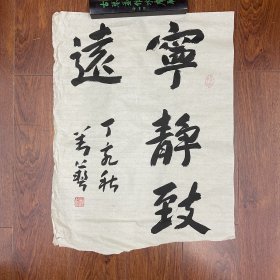 寧靜致
遠
丁亥秋